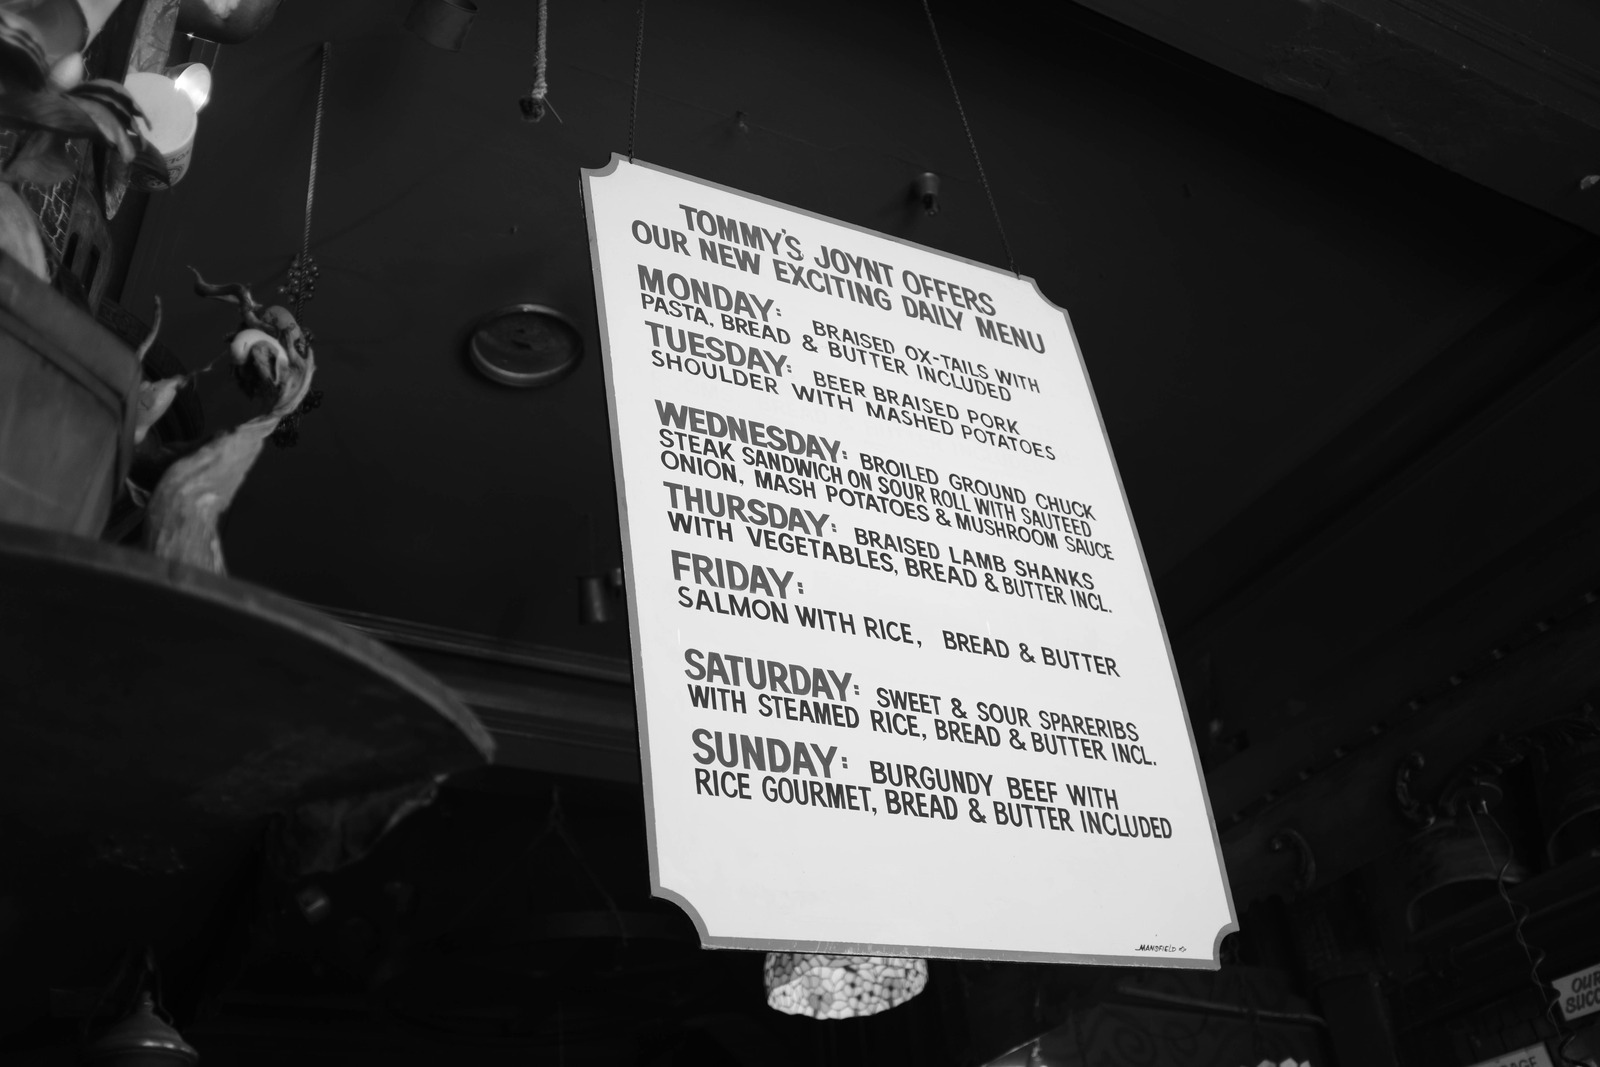 TOMMY'S JOYNT OFFERS
OUR NEW EXCITING DAILY MENU
MONDAY: BRAISED OX-TAILS WITH
PASTA, BREAD & BUTTER INCLUDED
TUESDAY: BEER BRAISED PORK
SHOULDER WITH MASHED POTATOES
WEDNESDAY: BROILED GROUND CHUCK
STEAK SANDWICH ON SOUR ROLL WITH SAUTEED
ONION, MASH POTATOES & MUSHROOM SAUCE
THURSDAY: BRAISED LAMB SHANKS
WITH VEGETABLES, BREAD & BUTTER INCL.
FRIDAY:
SALMON WITH RICE, BREAD & BUTTER
SATURDAY: SWEET & SOUR SPARERIBS
WITH STEAMED RICE, BREAD & BUTTER INCL.
SUNDAY: BURGUNDY BEEF WITH
RICE GOURMET, BREAD & BUTTER INCLUDED
MANSFIELD
OUR